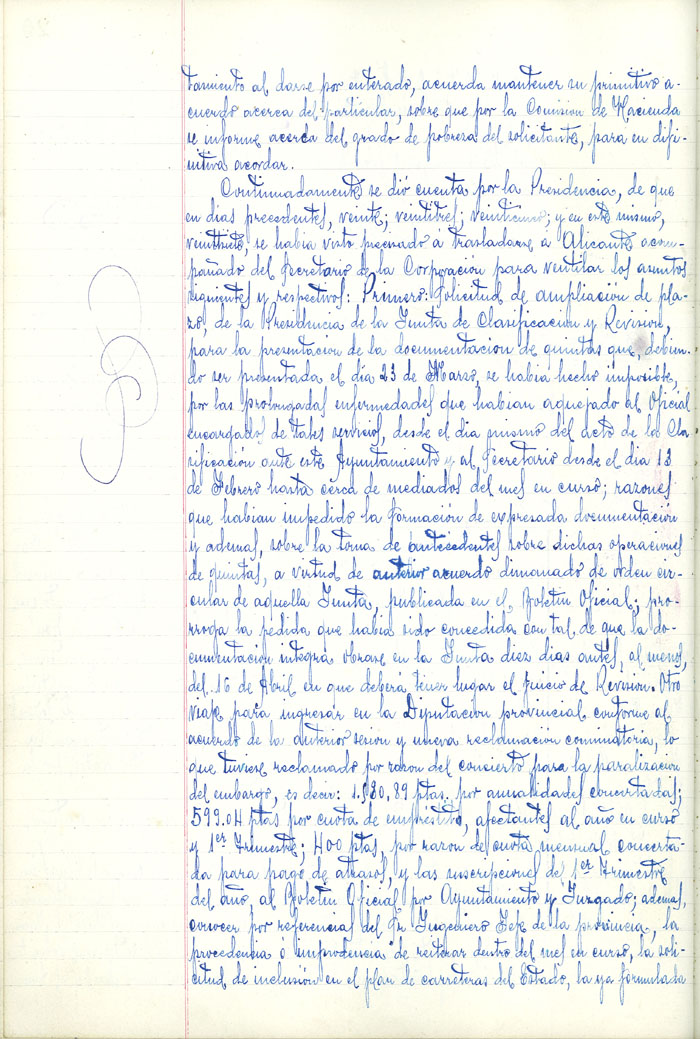 tamiento al darse por enterado, acuerda mantener su primitivo a-
cuerdo acerca del particular, sobre que por la Comisión de Hacienda
se informe acerca del grado de pobreza del solicitante, para en difi-
nitiva acordar.
Continuadamente se dió cuenta por la Presidencia, de que
en dias precedentes, veinte; veintitres; veinticinco; y en este mismo,
veintisiete, se habia visto precisado á trasladarse á Alicante acom-
pañado del Secretario de la Corporación para ventilar los asuntos
siguientes y respectivos: Primero: Solicitud de ampliación de pla-
zo, de la Presidencia de la Junta de Clasificación y Revision,
para la presentacion de la documentacion de quintas que, debien-
do ser presentada el dia 23 de Marzo, se habia hecho imposible,
por las prolongadas enfermedades que habian aquejado al Oficial
encargado de tales servicios, desde el dia mismo del acto de la Cla-
sificación ante este Ayuntamiento y al Secretario desde el dia 13
de Febrero hasta cerca de mediados del mes en curso; razones
que habian impedido la formación de expresada documentación
y ademas, sobre la toma de antecedentes sobre dichas operaciones
de quintas, a virtud de anterior acuerdo dimanado de orden cir-
cular de aquella Junta, publicada en el Boletin Oficial; pró-
rroga la pedida que habia sido concedida con tal de que la do-
cumentación integra obrase en la Junta diez dias antes, al menos,
del 16 de Abril en que deberá tener lugar el juicio de Revision. Otro
viaje para ingresar en la Diputacion provincial conforme al
acuerdo de la anterior sesion y nueva reclamación conminatoria, lo
que tuviese reclamado por razon del concierto para la paralizacion
del embargo, es decir: 1.980,89 ptas. por anualidades concertadas;
599.04 ptas por cuota de empréstito, afectantes al año en curso
y 1er Trimestre; 400 ptas, por razon de cuota mensual concerta-
da para pago de atrasos, y las suscripciones de 1er Trimestre
del año al Boletin Oficial por Ayuntamiento y Juzgado; ademas,
conocer por referencias del Sr. Ingeniero Jefe de la provincia, la
procedencia ó improdencia de reiterar dentro del mes en curso, la soli-
citud de inclusión en el plan de carreteras del Estado, la ya formulada